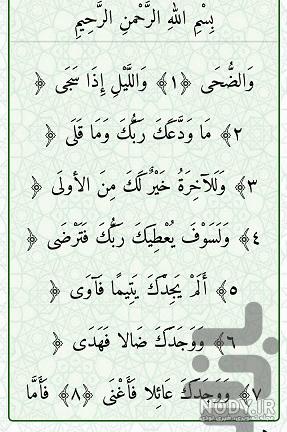 بِسْمِ اللهِ الرَّحْمنِ الرَّحِيمِ
وَالضُّحَى ﴿۱﴾ وَاللَّيْلِ إِذَا سَجَى ﴿
۲﴾ مَا وَدَّعَكَ رَبُّكَ وَمَا قَلَى ﴿
۳﴾ وَلَلْآخِرَةُ خَيْرٌ لَكَ مِنَ الْأُولَى ﴿
٤﴾ وَلَسَوْفَ يُعْطِيكَ رَبُّكَ فَتَرْضَى ﴿
۵﴾ أَلَمْ يَجِدْكَ يَتِيمًا فَآوَى ﴿
٦﴾ وَوَجَدَكَ ضَالا فَهَدَى ﴿
۷﴾ وَوَجَدَكَ عَائِلا فَأَغْنَى ﴿۸﴾ فَأَمَّا
NODY.IR